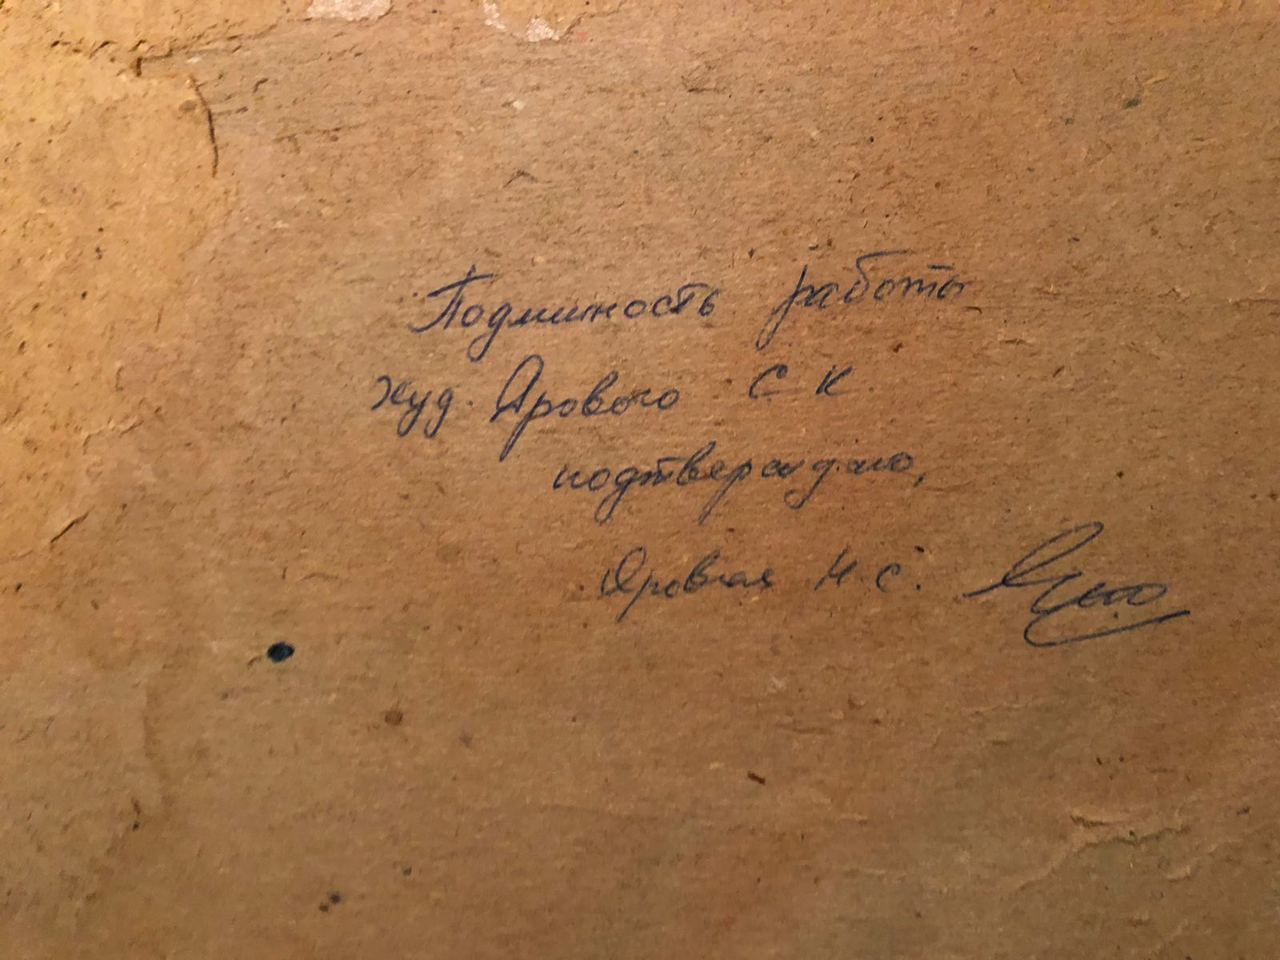 Подлинность работы
худ. Ярового С К
подтверждаю,
Яровая Н. С.